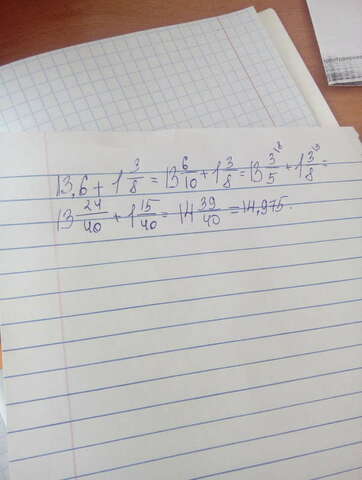 13,6 + 1 3/8 = 13 6/10 + 1 3/8 = 13 3/5 + 1 3/8 =
13 24/40 + 1 15/40 = 14 39/40 = 14,975.